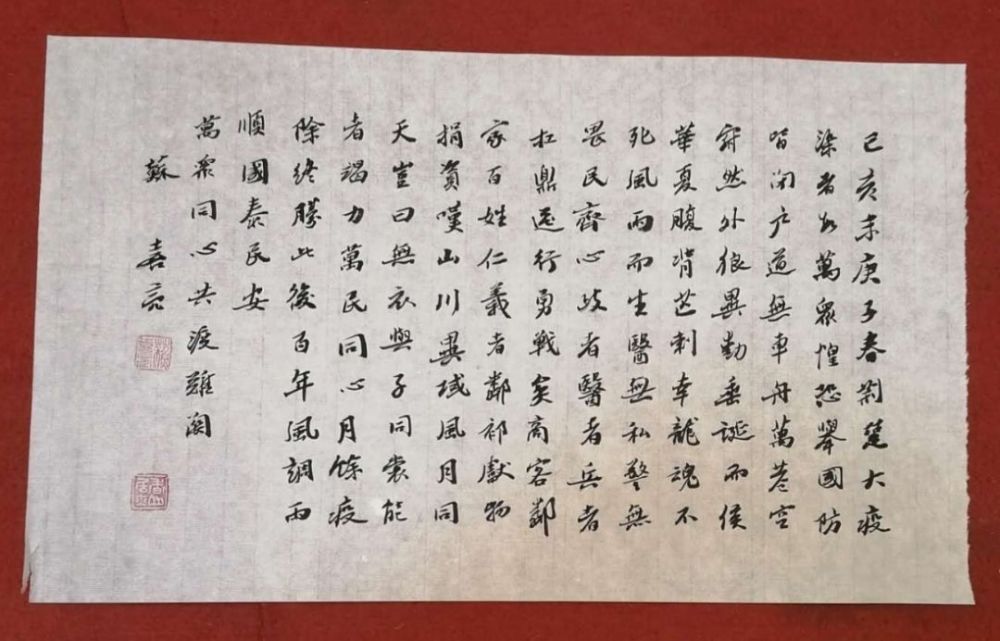 己亥末庚子春荊楚大疫
染者數萬眾惶恐舉國防
皆閉戶道無車舟萬巷空
寂然外狼異動垂涎而侯
華夏腹背芒刺幸龍魂不
死風雨而生醫無私警無
畏民齊心政者醫者兵者
扛鼎逆行勇戰矣商客鄰
家百姓仁義者鄰祁獻物
捐資嘆山川異域風月同
天豈曰無衣與子同裳能
者竭力萬民同心月餘疫
除終勝此後百年風調雨
順國泰民安
萬眾同心共渡難關
蘇喜亮